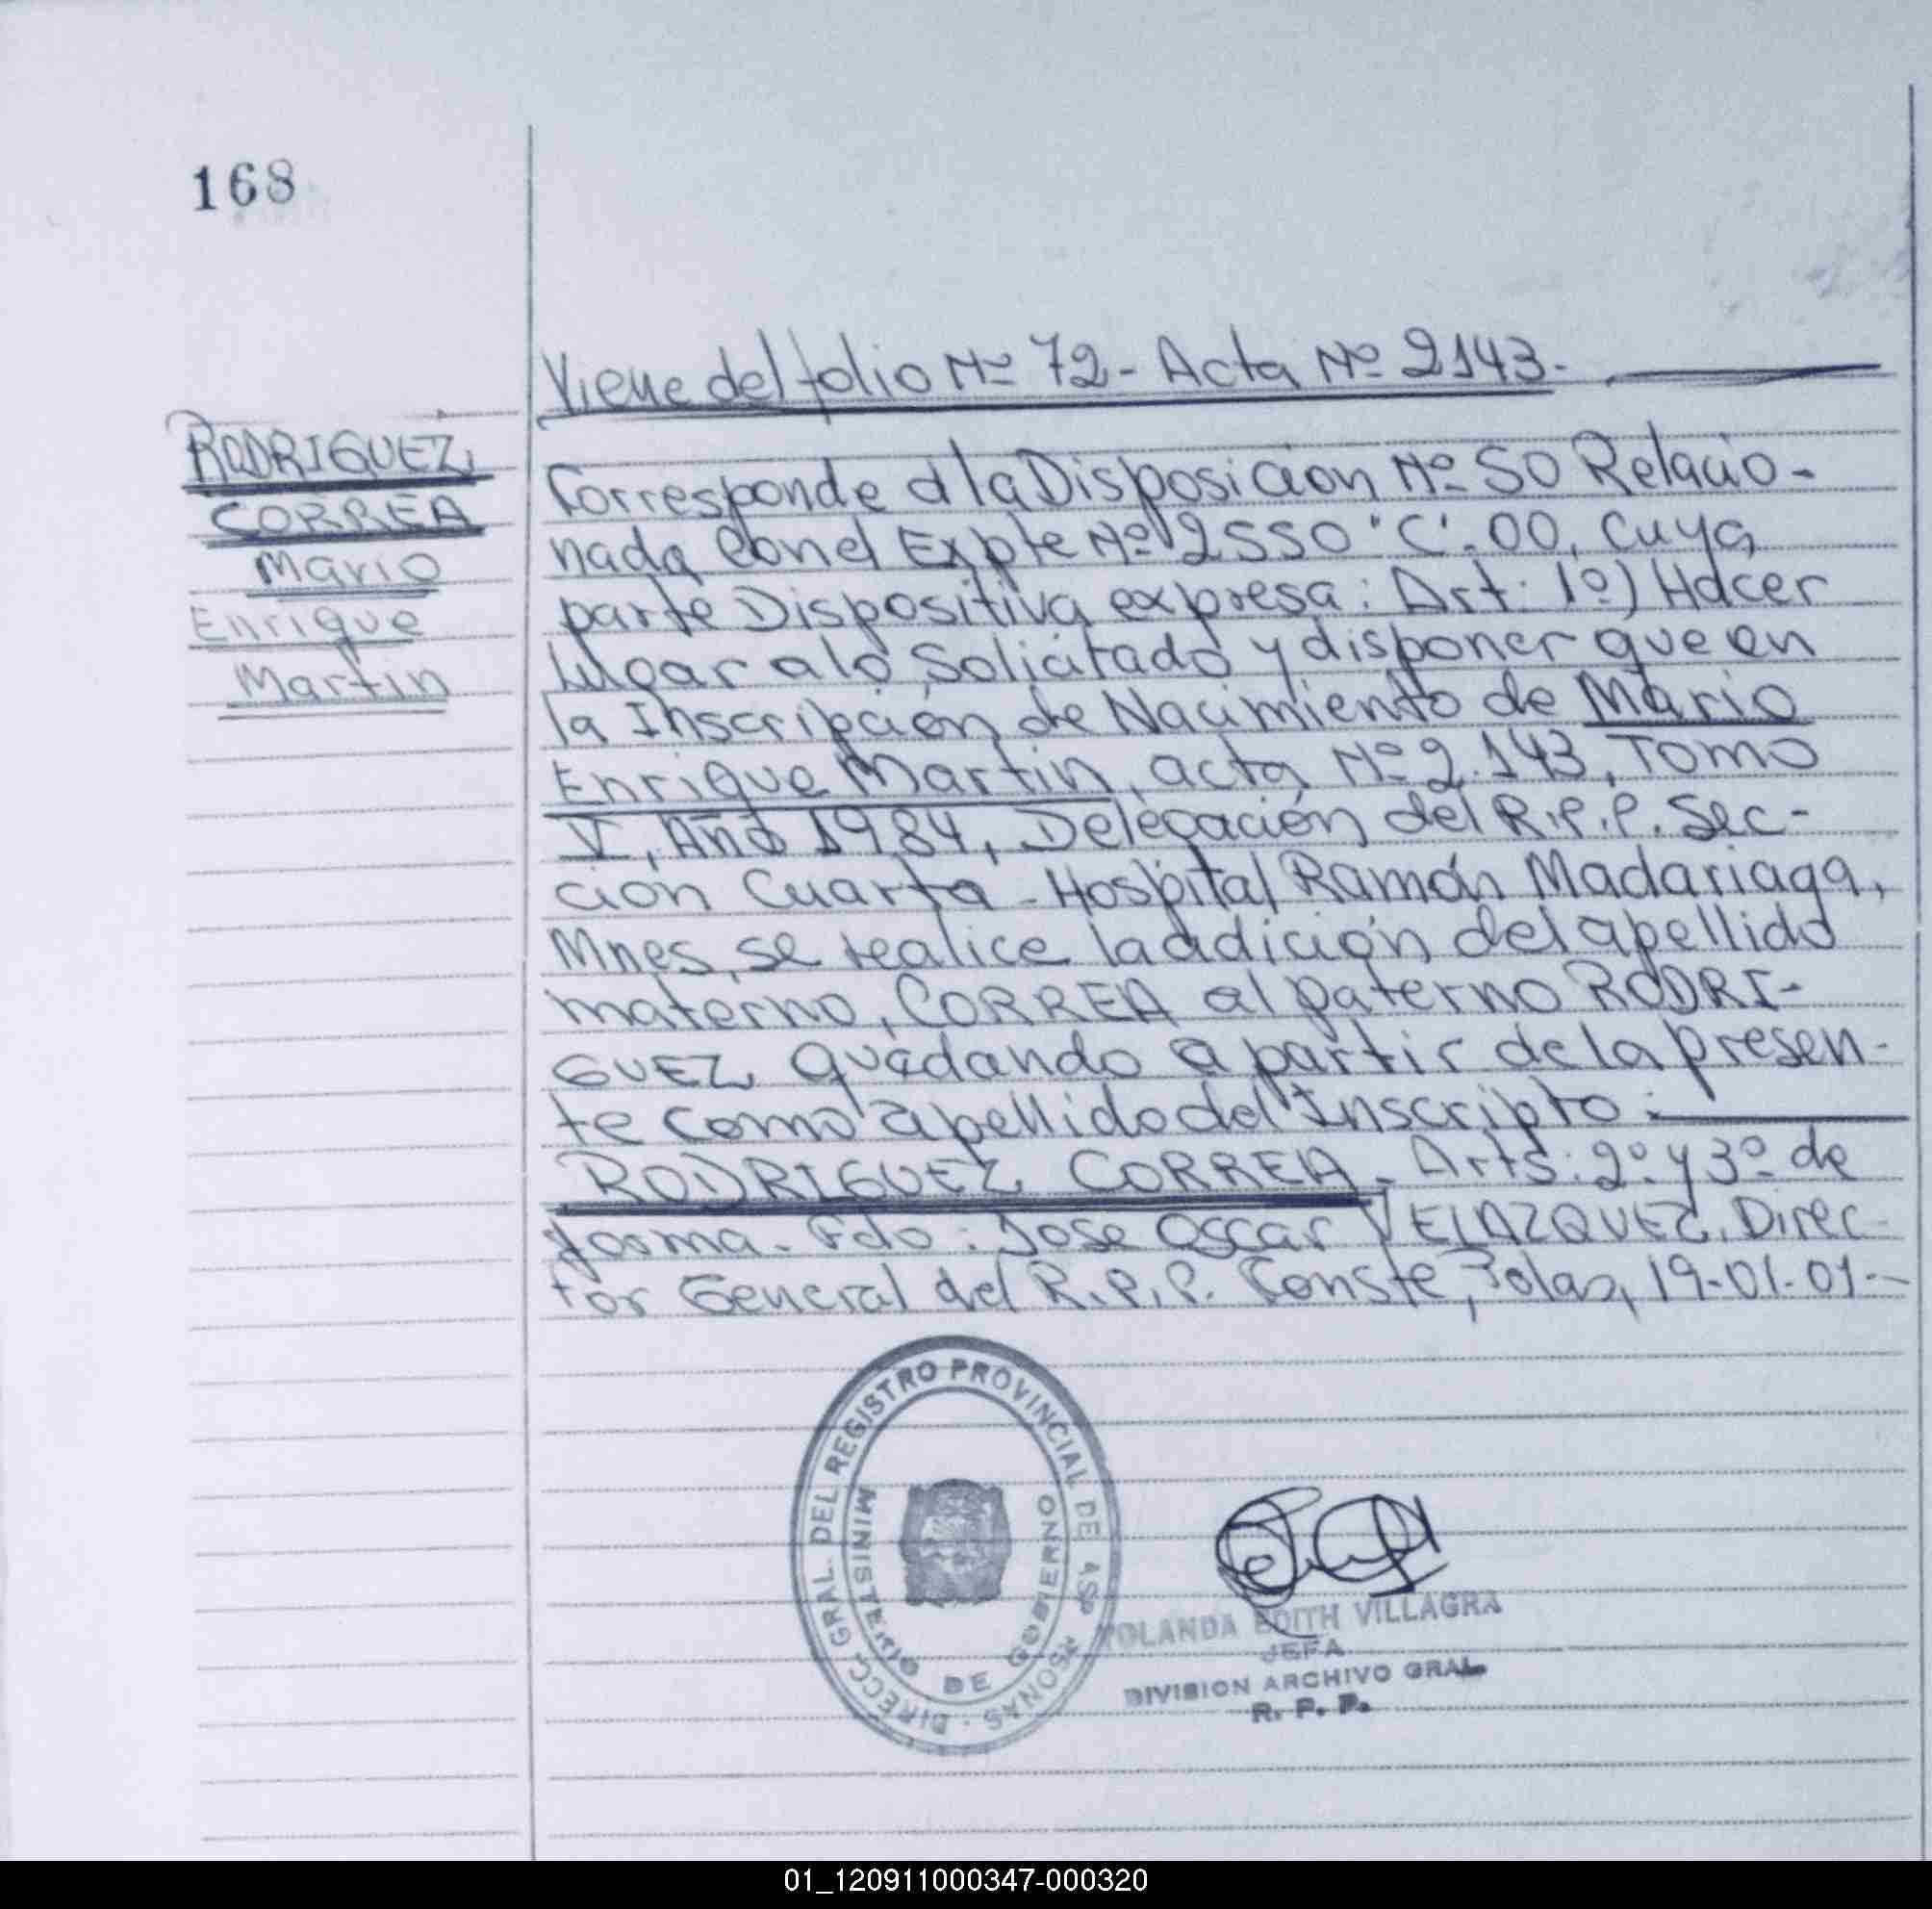 168
Viene del folio Nº 72 - Acta Nº 2143.-
RODRIGUEZ
CORREA
Mario
Enrique
Martin
Corresponde a la Disposicion Nº 50 Relacio-
nada Con el Expte Nº 2550 "C".00, cuya
parte Dispositiva expresa: Art: 1º) Hacer
lugar a lo Solicitado y disponer que en
la Inscripción de Nacimiento de Mario
Enrique Martin, acta Nº 2.143, Tomo
V, Año 1984, Delegación del R.P.P. Sec-
ción Cuarta - Hospital Ramón Madariaga,
Mnes, se realice la adición del apellido
materno, CORREA al paterno RODRI-
GUEZ quedando a partir de la presen-
te como apellido del Inscripto:
RODRIGUEZ CORREA - Arts: 2º y 3º de
forma. Fdo: Jose Oscar VELAZQUEZ, Direc-
tor General del R.P.P. Conste, Pdas, 19-01-01.-
DIRECC. GRAL. DEL REGISTRO PROVINCIAL DE PERSONAS
MINISTERIO DE GOBIERNO
YOLANDA EDITH VILLAGRA
JEFA
DIVISION ARCHIVO GRAL.
R. P. P.
01_120911000347-000320